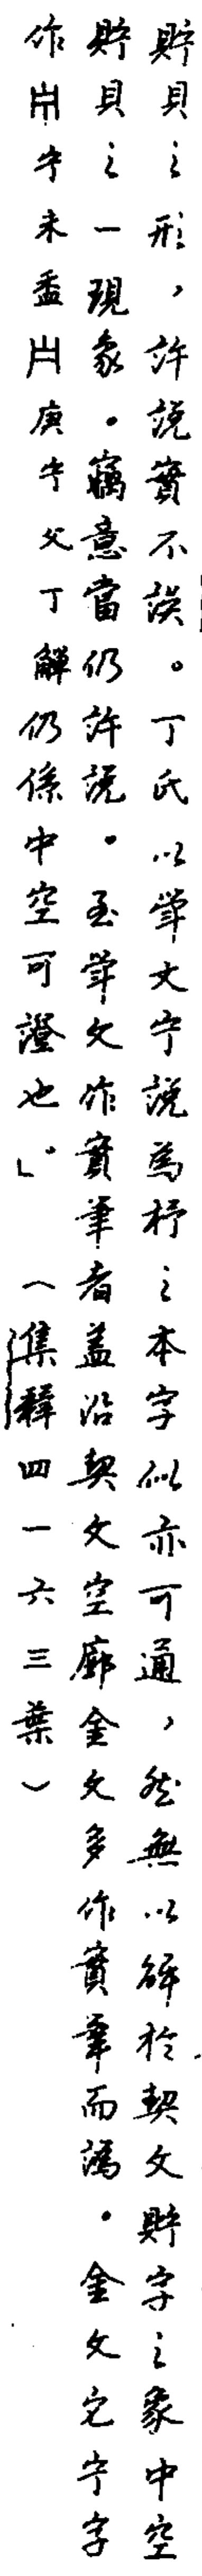 貯貝之形，許說實不誤。丁氏以單文宁說為杼之本字似亦可通，然無以解於契文貯字之象中空
貯貝之一現象。竊意當仍許說。至單文作實筆者蓋沿契文空廓金文多作實筆而譌。金文它宁字
作宁未盉庚宁父丁觶仍係中空可證也」。（集釋四一六三葉）